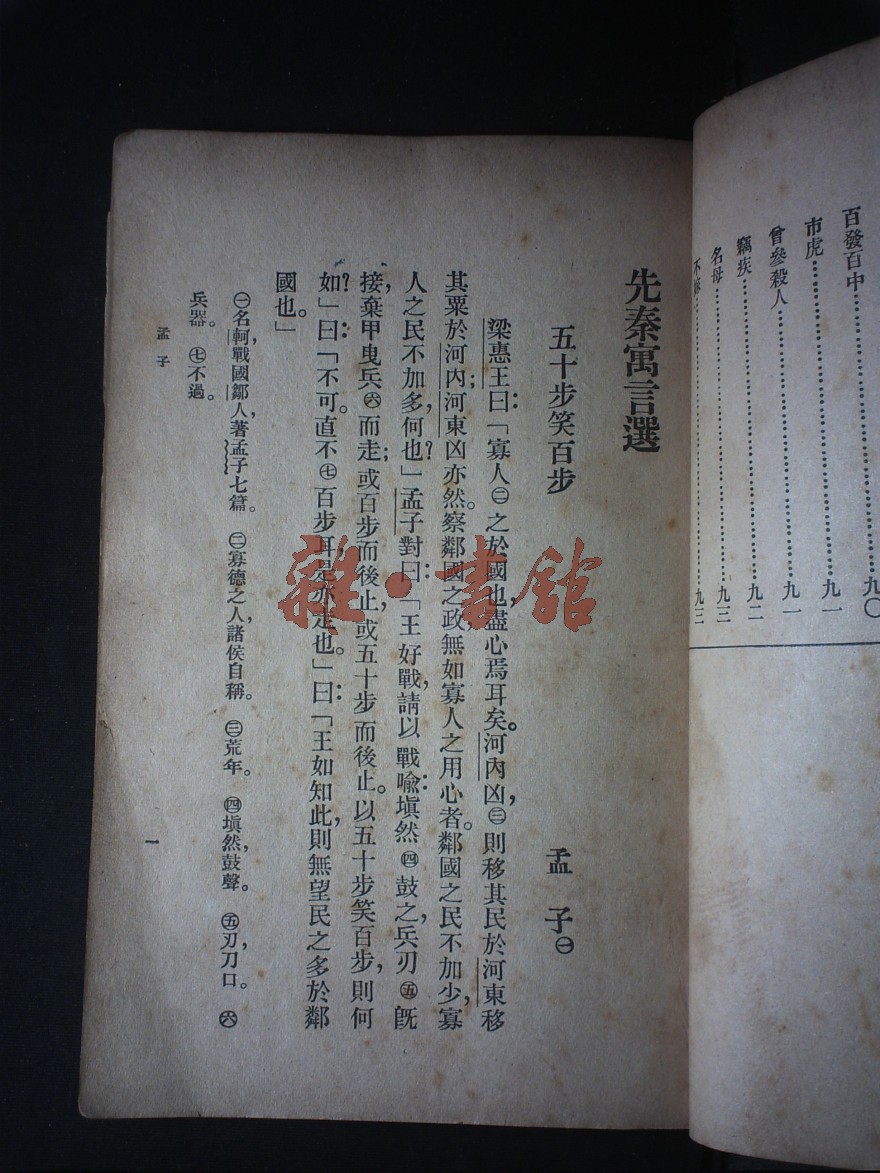 百發百中………………九〇
市虎………………九一
曾參殺人………………九一
竊疾………………九二
名母………………九三
………………九三
先秦寓言選
五十步笑百步 孟子㊀
梁惠王曰：「寡人㊁之於國也，盡心焉耳矣。河內凶，㊂則移其民於河東移
其粟於河內；河東凶亦然。察鄰國之政，無如寡人之用心者。鄰國之民不加少，寡
人之民不加多，何也？」孟子對曰：「王好戰，請以戰喻：塡然㊃鼓之，兵刃㊄旣
接，棄甲曳兵㊅而走；或百步而後止，或五十步而後止。以五十步笑百步，則何
如？」曰：「不可。直不㊆百步耳，是亦走也。」曰：「王如知此，則無望民之多於鄰
國也。」
㊀名軻，戰國鄒人，著孟子七篇。 ㊁寡德之人，諸侯自稱。 ㊂荒年。 ㊃塡然，鼓聲。 ㊄刃，刀口。 ㊅
兵器。 ㊆不過。
孟子
一
雜·書舘